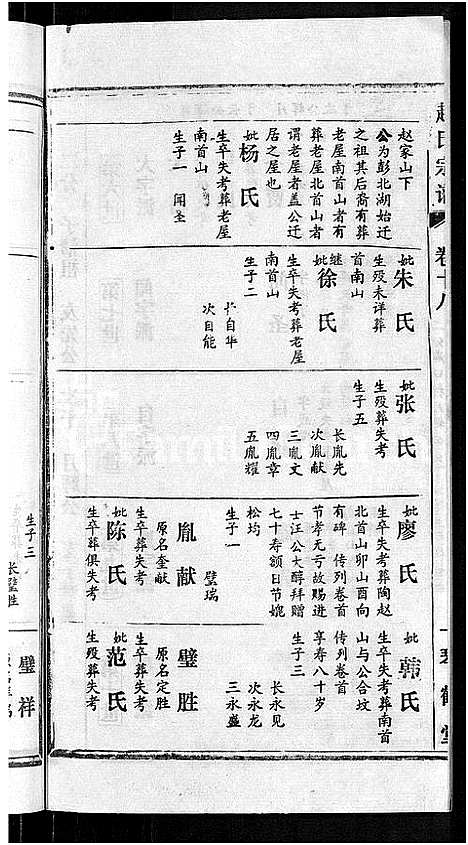 赵氏宗谱
卷十八
一琴鹤堂
赵家山下
公为彭北湖始迁
之祖其后裔有葬
老屋南首山者有
葬老屋北首山者
谓老屋者盖公迁
居之屋也
妣杨氏
生卒失考葬老屋
南首山
生子一 闻圣
妣朱氏
生殁未详葬
首南山
继妣徐氏
生卒失考葬老屋
南首山
生子二
长自华
次自能
妣张氏
生殁葬失考
生子五
长胤先
次胤献
三胤文
四胤章
五胤耀
妣廖氏
生卒失考葬陶赵
北首山卯山酉向
有碑 传列卷首
节孝无亏故赐进
士汪公大醇拜赠
七十寿额曰节媲
松筠
生子一
璧瑞
胤献
原名奎献
生卒葬失考
妣陈氏
生卒葬俱失考
妣韩氏
生卒失考葬南首
山与公合坟
传列卷首
享寿八十岁
生子三
长永见
次永龙
三永盛
璧胜
原名定胜
生卒葬失考
妣范氏
生殁葬失考
生子三
长璧胜
璧祥